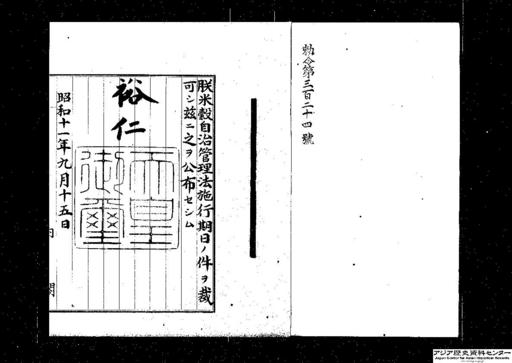 勅令第三百二十四號
朕米穀自治管理法施行期日ノ件ヲ裁
可シ玆ニ之ヲ公布セシム
裕仁
天皇御璽
昭和十一年九月十五日
アジア歴史資料センター
Japan Center for Asian Historical Records